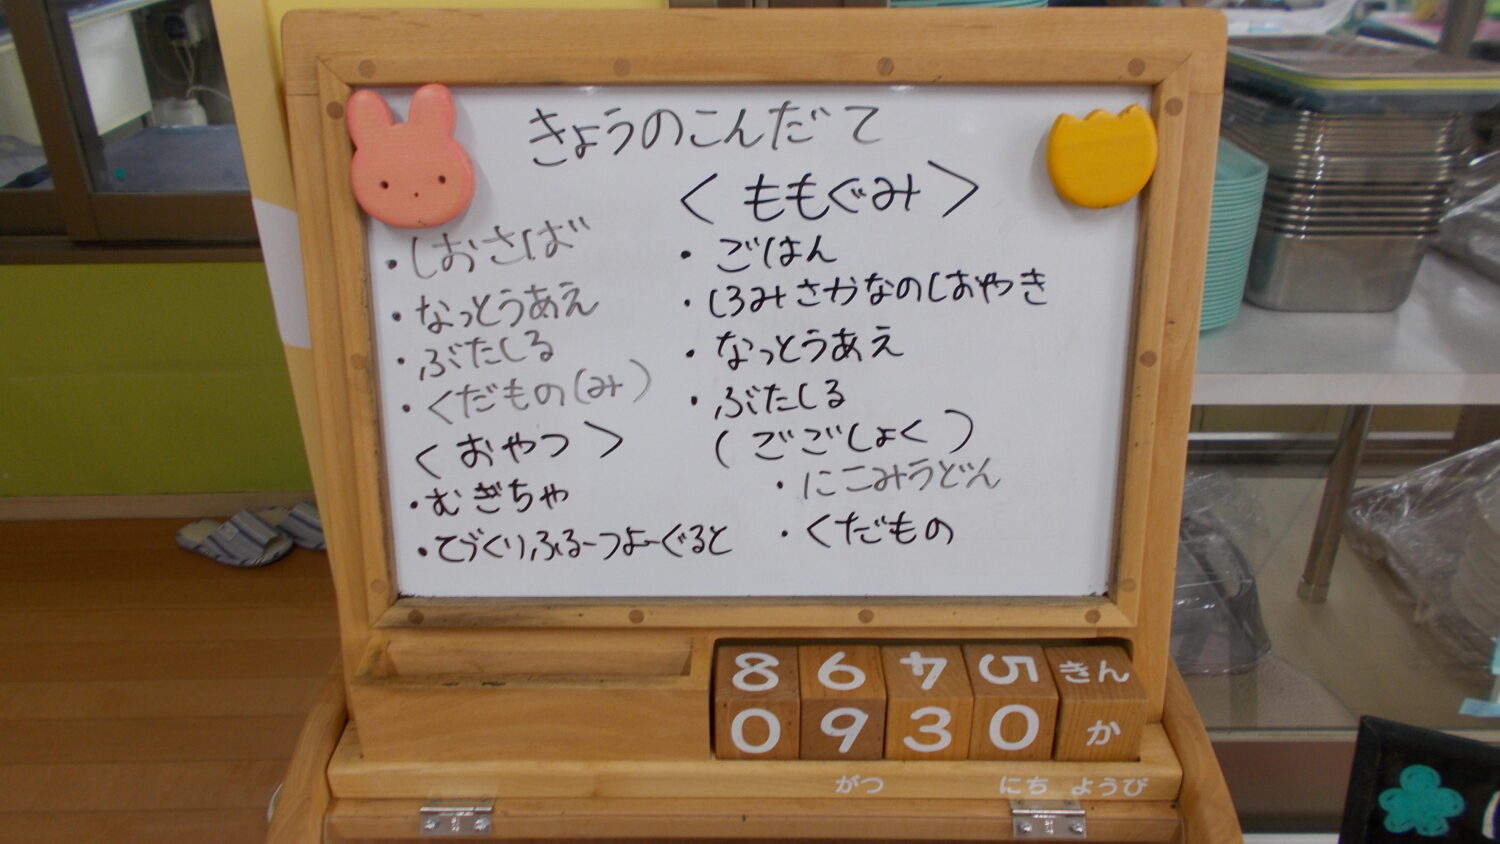 きょうのこんだて
・しおさば
・なっとうあえ
・ぶたじる
・くだもの(み)
<おやつ>
・むぎちゃ
・てづくりふるーつよーぐると
<ももぐみ>
・ごはん
・しろみさかなのしおやき
・なっとうあえ
・ぶたじる
(ごごしょく)
・にこみうどん
・くだもの
8 6 4 5 きん
0 9 3 0 か
がつ にち ようび